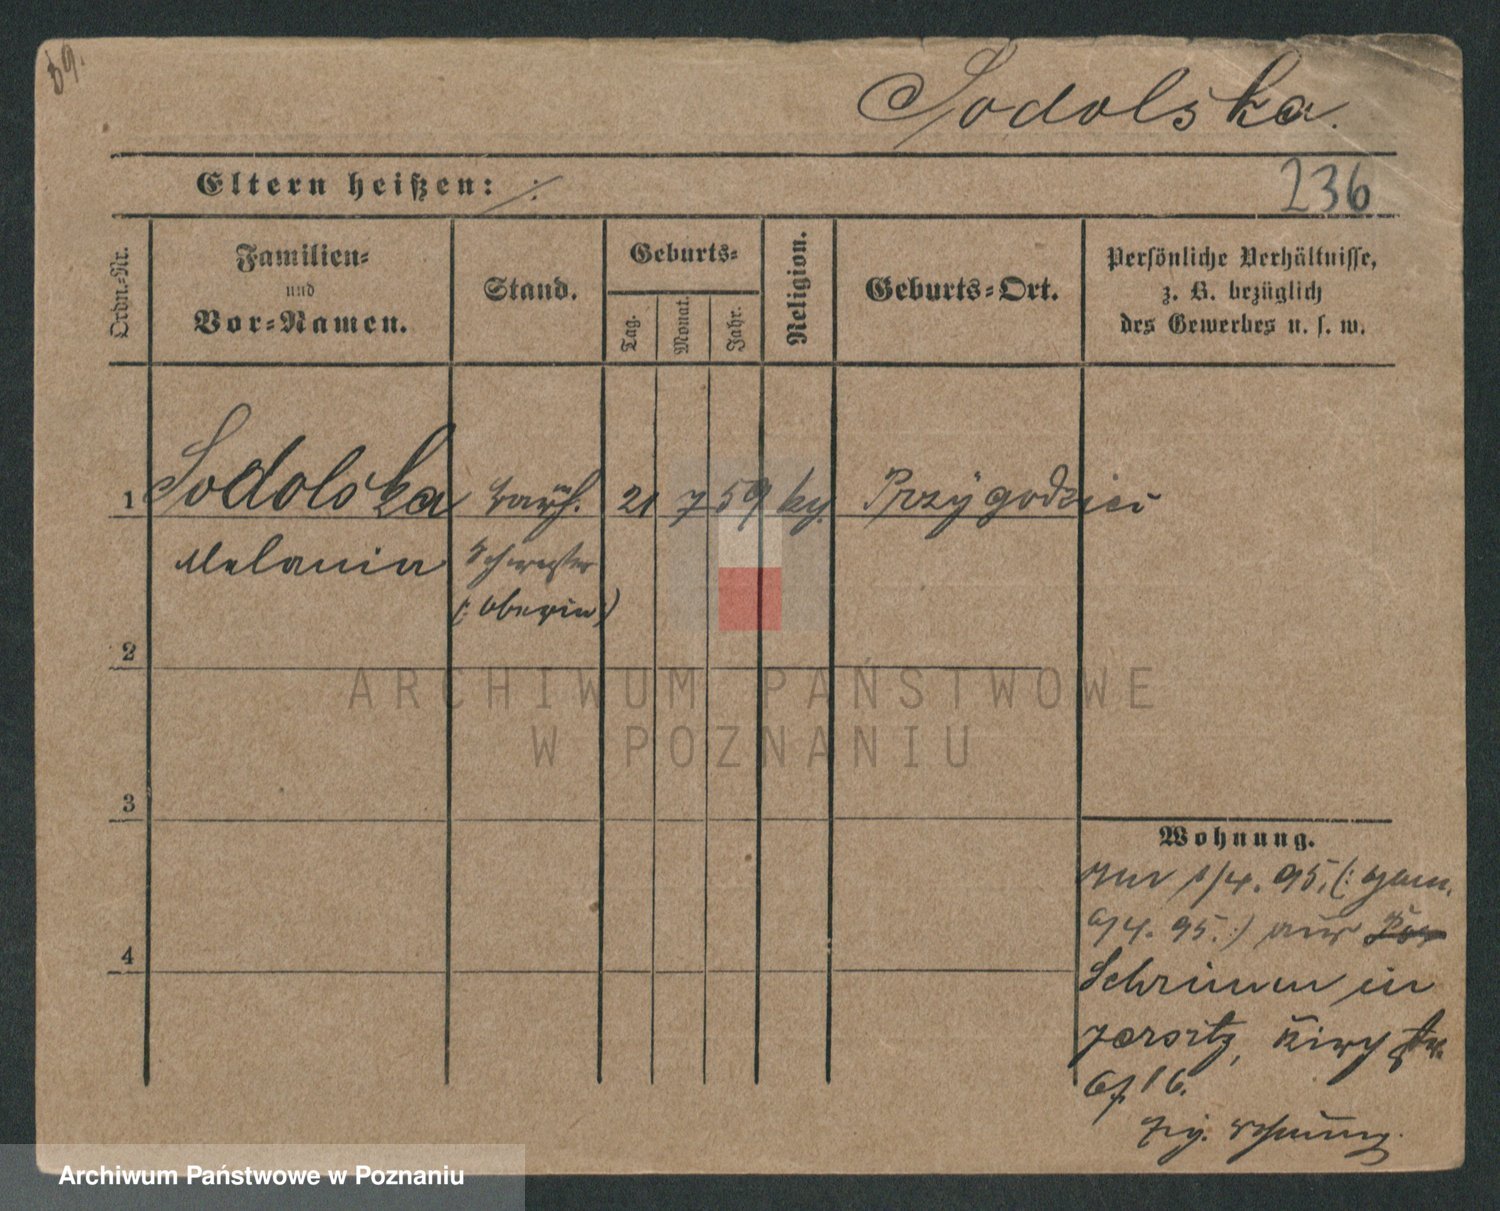 Sodolska.
Eltern heißen: ./.
236
Ordn.-Nr.
Familien-
und
Vor-Namen.
Stand.
Geburts-
Tag.
Monat.
Jahr.
Religion.
Geburts-Ort.
Persönliche Verhältnisse,
z. B. bezüglich
des Gewerbes u. s. w.
1 Sodolska barmh. 21 7 59 Przygodzice
Melania Schwester
(: Oberin :)
2
ARCHIWUM PAŃSTWOWE
W POZNANIU
3
Wohnung.
1/4. 95. (: gem.
6/4. 95. :) aus
4
Schrimm in
Jersitz, Kirchstr.
16.
Wohnung.
Archiwum Państwowe w Poznaniu